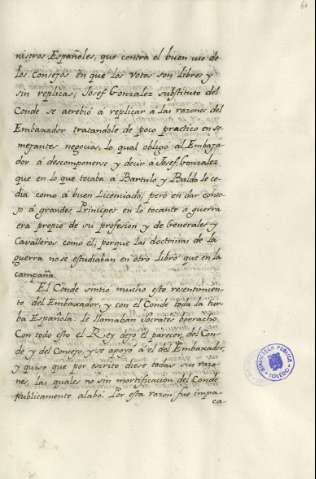 nistros Españoles, que contra el buen uso de
los Consejos en que los Votos son libres y
sin replicas, Josef Gonzalez substituto del
Conde se atrebió a replicar a las razones del
Embaxador tratandole de poco practico en se-
mejantes negocios lo qual obligó al Embaxa-
dor á descomponerse y decir á Josef Gonzalez
que en lo que tocaba á Bartulo y Baldo le ce-
dia como á buen Licenciado, pero en dar conse-
jo á grandes Principes en lo tocante a guerra
era propio de su profesion y de Generales y
Cavalleros como él, porque las doctrinas de la
guerra no se estudiaban en otro libro que en la
campaña.
El Conde sintió mucho este resentimien-
to del Embaxador, y con el Conde toda la tur-
ba Española. Le llamaban Socrates
Con todo esto el Rey dejó el parecer del Con-
de y del Consejo, y se apoyó a el del Embaxador
y quiso que por escrito diese todas sus razo-
nes, las quales no sin mortificacion del Conde
publicamente alabó. Por esta razon fue impa-
ca-
BIBLIOTECA PUBLICA
TOLEDO